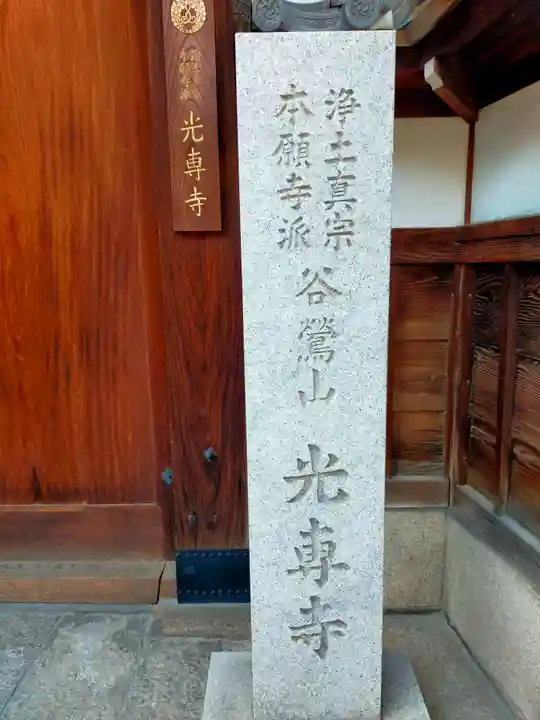 浄土真宗
本願寺派
谷鶯山
光専寺
光専寺